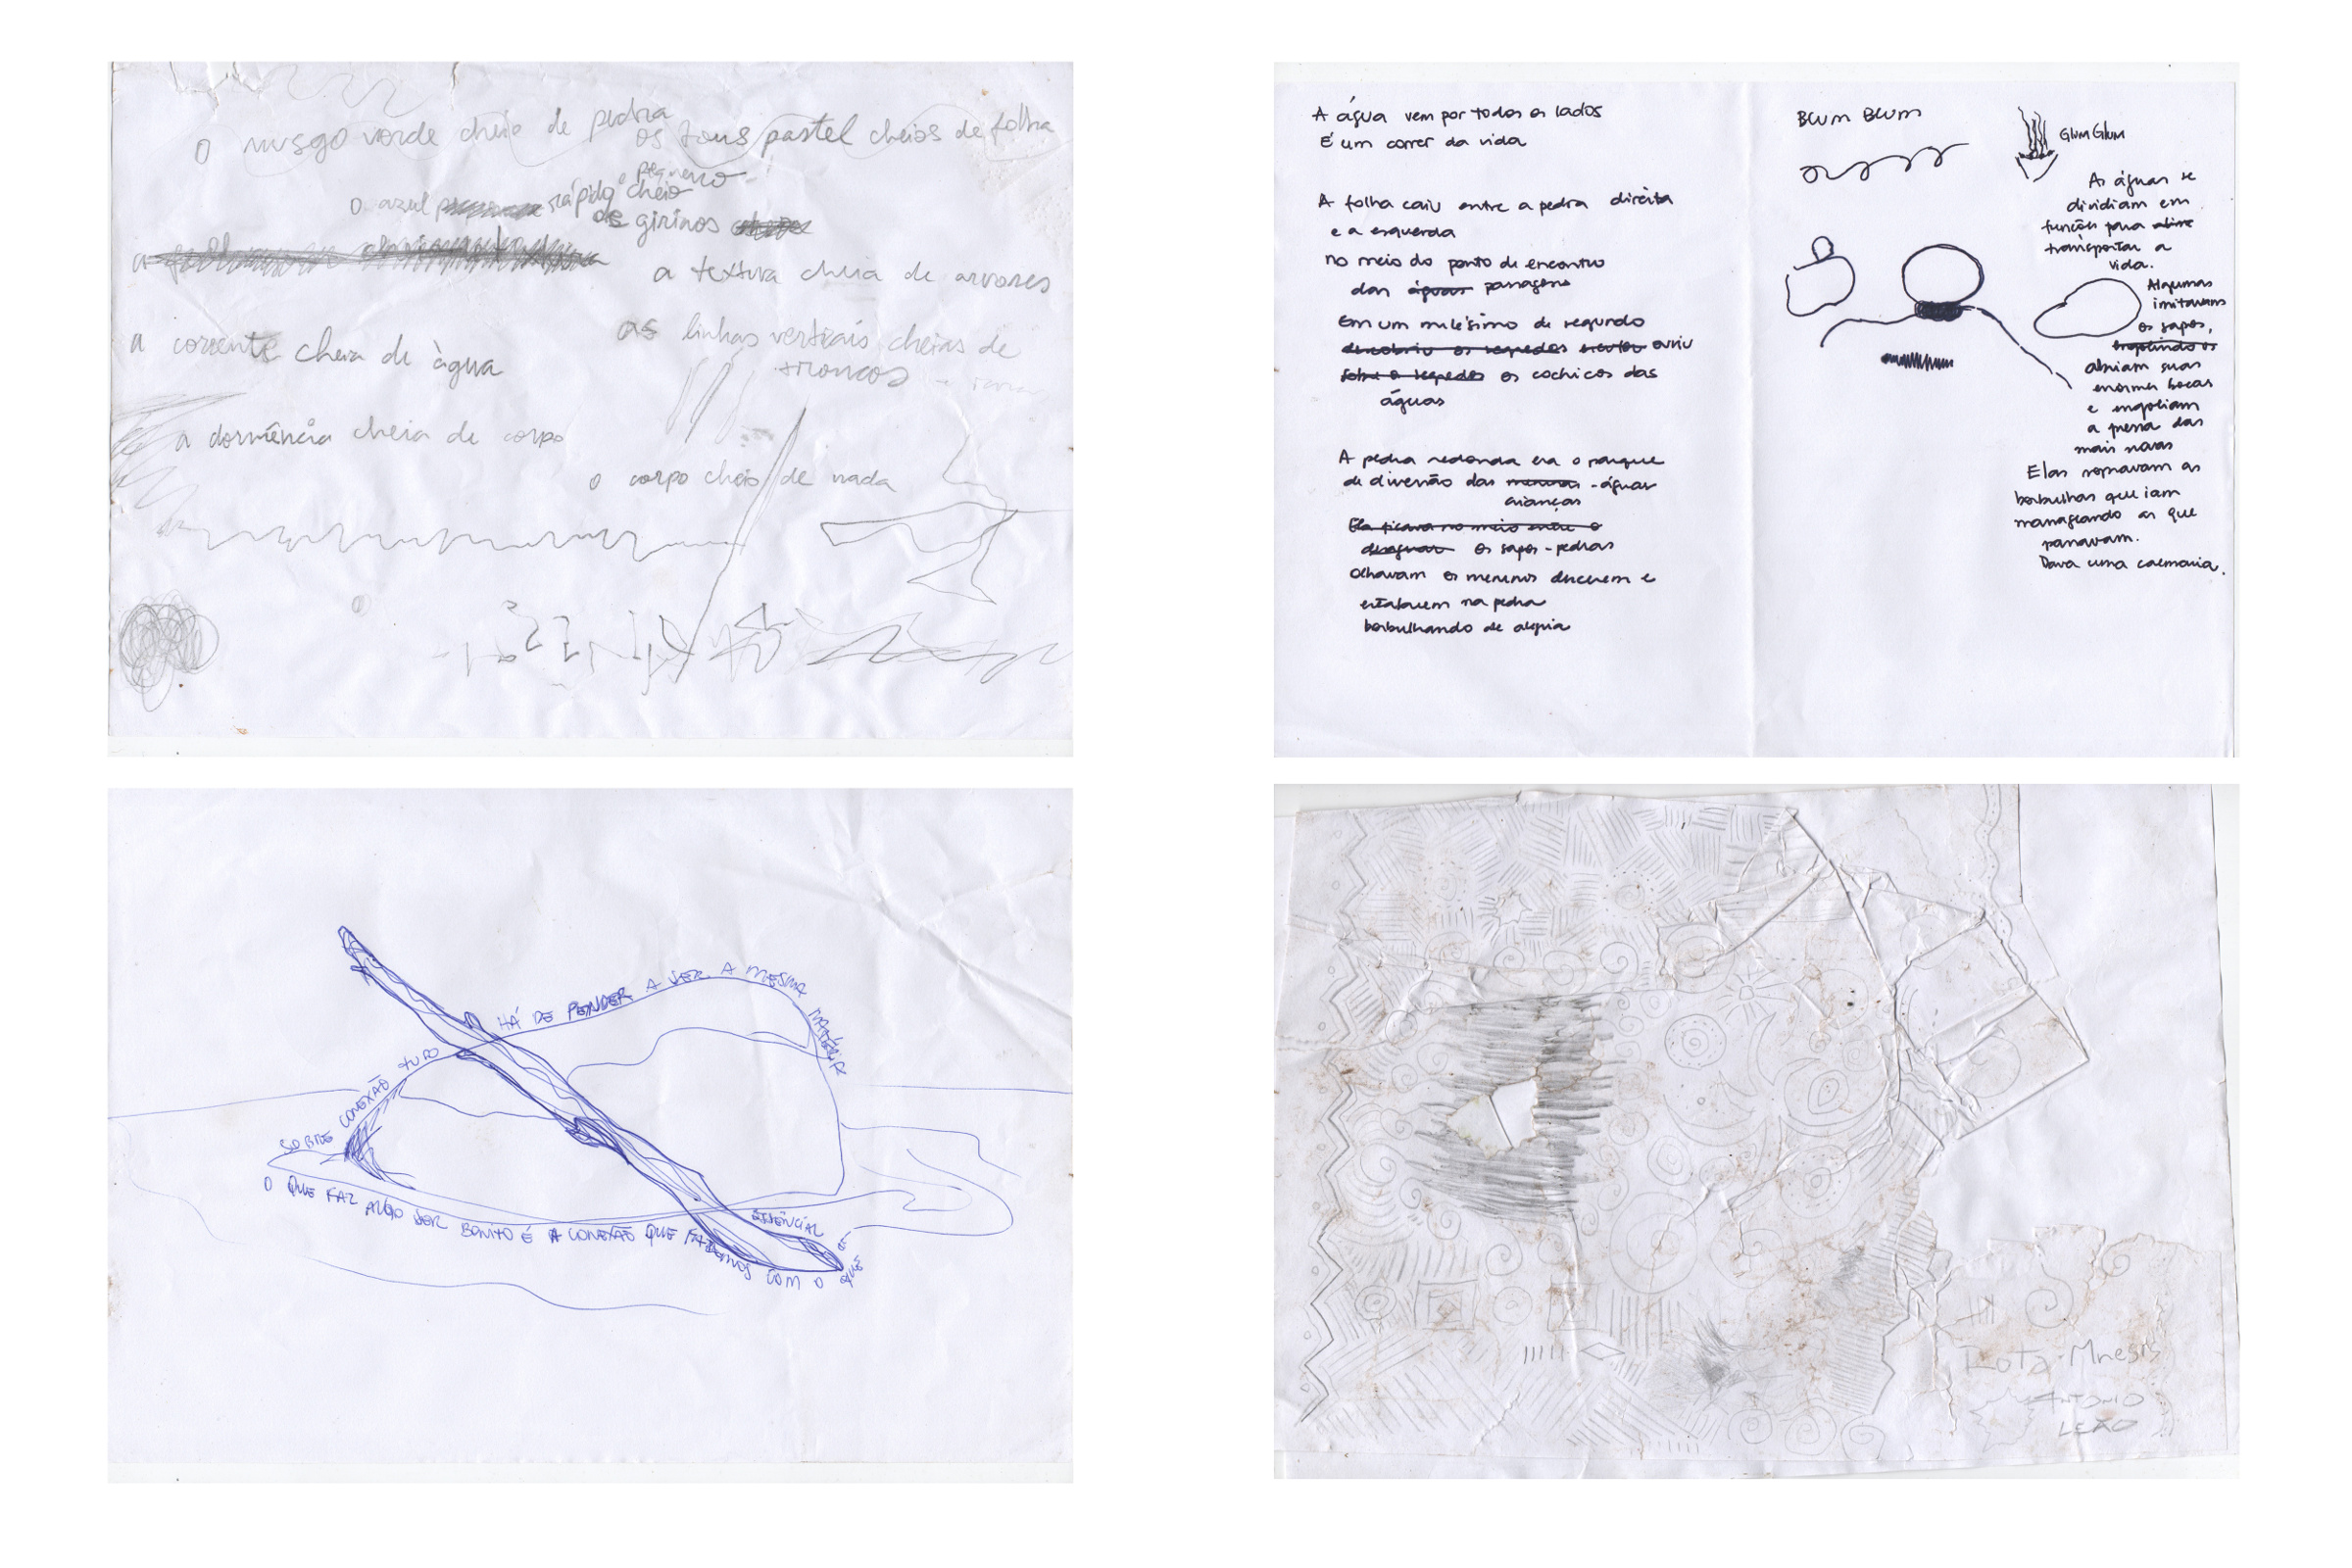 o musgo verde cheio de pedra
os tons pastel cheios de folha
o azul rápido e pequeno cheio
de girinos
a
a textura cheia de arvores
a corrente cheia de àgua
as linhas verticais cheias de
troncos
a dormência cheia de corpo
o corpo cheio de nada
A água vem por todos os lados
É um correr da vida
A folha caiu entre a pedra direita
e a esquerda
no meio do ponto de encontro
das águas passagens
Em um milésimo de segundo
descobriu os segredos ouviu
sobre o segredos os cochicos das
águas
A pedra redonda era o parque
de diversão das meninas - águas
crianças
Ela ficava no meio entre o
desaguar os sapos - pedras
olhavam os meninos descerem e
estalarem na pedra
borbulhando de alegria
BLUM BLUM
GLUM GLUM
As águas se
dividiam em
funções para
transportar a
vida.
Algumas
imitavam
os sapos,
engolindo os
abriam suas
enormes bocas
e engoliam
a pressa das
mais novas
Elas sopravam as
borbulhas que iam
massageando as que
passavam.
Dava uma calmaria.
SOBRE CONEXÃO TUDO HÁ DE PENDER A SER A MESMA MATÉRIA
O QUE FAZ ALGO SER BONITO É A CONEXÃO QUE FAZEMOS COM O QUE É ESSENCIAL
Rota-Mnesis
ANTONIO
LEÃO